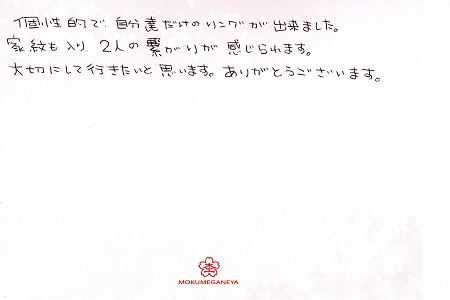 個性的で、自分達だけのリングが出来ました。
家紋も入り、2人の繋がりが感じられます。
大切にして行きたいと思います。ありがとうございます。
MOKUMEGANEYA